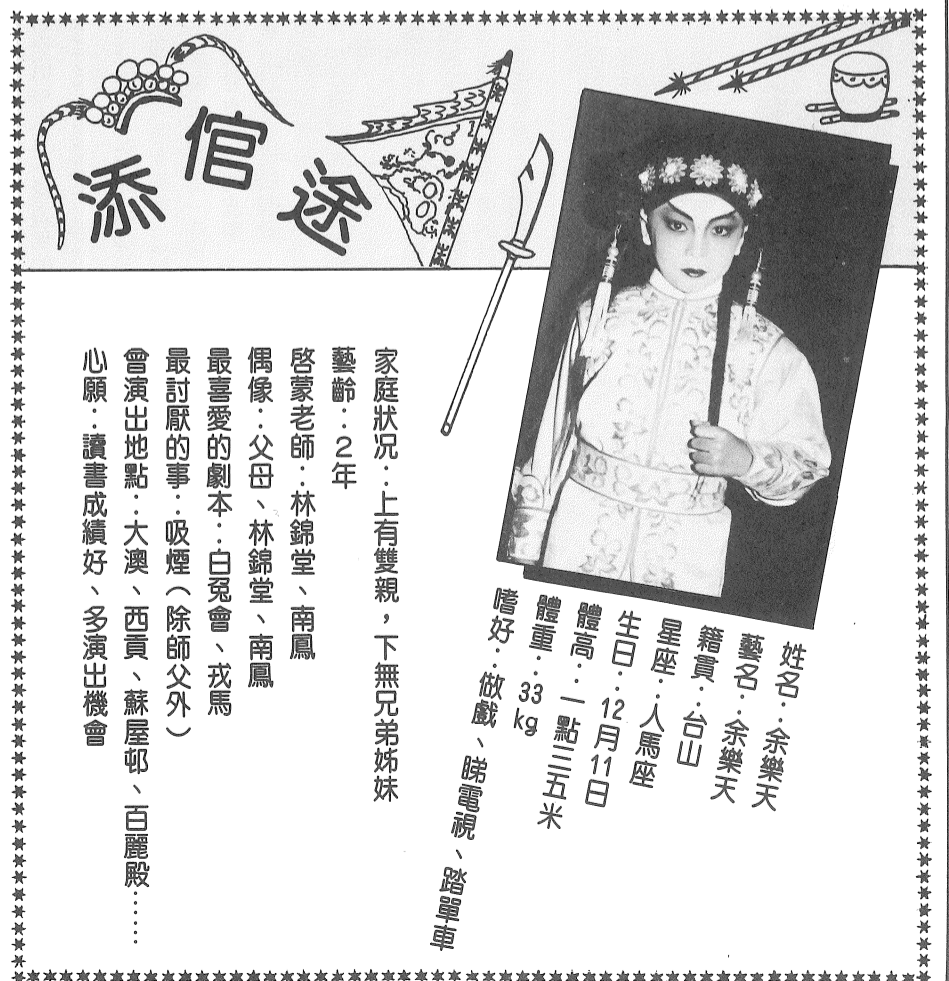 添倌途
姓名：余樂天
藝名：余樂天
籍貫：台山
星座：人馬座
生日：12月11日
體高：一點三五米
體重：33 kg
嗜好：做戲、睇電視、踏單車
家庭狀况：上有雙親，下無兄弟姊妹
藝齡：2年
啓蒙老師：林錦堂、南鳳
偶像：父母、林錦堂、南鳳
最喜愛的劇本：白兔會、戎馬
最討厭的事：吸煙（除師父外）
曾演出地點：大澳、西貢、蘇屋邨、百麗殿……
心願：讀書成績好、多演出機會